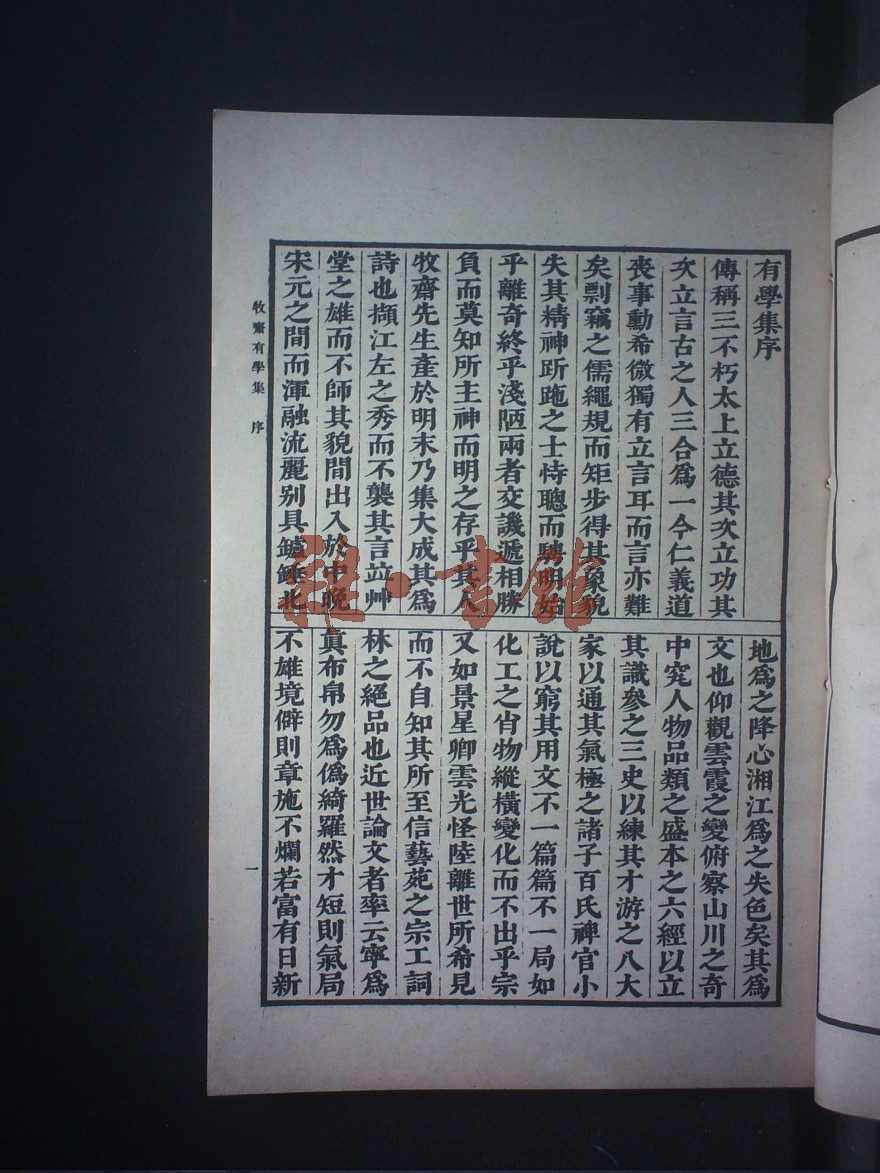 有學集序
傳稱三不朽太上立德其次立功其
次立言古之人三合爲一今仁義道
喪事勳希微獨有立言耳而言亦難
矣剽竊之儒繩規而矩步得其象貌
失其精神跅跑之士恃聰而騁明始
乎離奇終乎淺陋兩者交譏遞相勝
負而莫知所主神而明之存乎其人
牧齋先生產於明末乃集大成其爲
詩也擷江左之秀而不襲其言竝艸
堂之雄而不師其貌間出入於中晚
宋元之間而渾融流麗别具鑪錘北
地爲之降心湘江爲之失色矣其爲
文也仰觀雲霞之變俯察山川之奇
中究人物品類之盛本之六經以立
其識參之三史以練其才游之八大
家以通其氣極之諸子百氏稗官小
說以窮其用文不一篇篇不一局如
化工之肖物縱橫變化而不出乎宗
又如景星卿雲光怪陸離世所希見
而不自知其所至信藝苑之宗工詞
林之絕品也近世論文者率云寧爲
眞布帛勿爲僞綺羅然才短則氣局
不雄境僻則章施不爛若富有日新
牧齋有學集 序
一
雜·書館